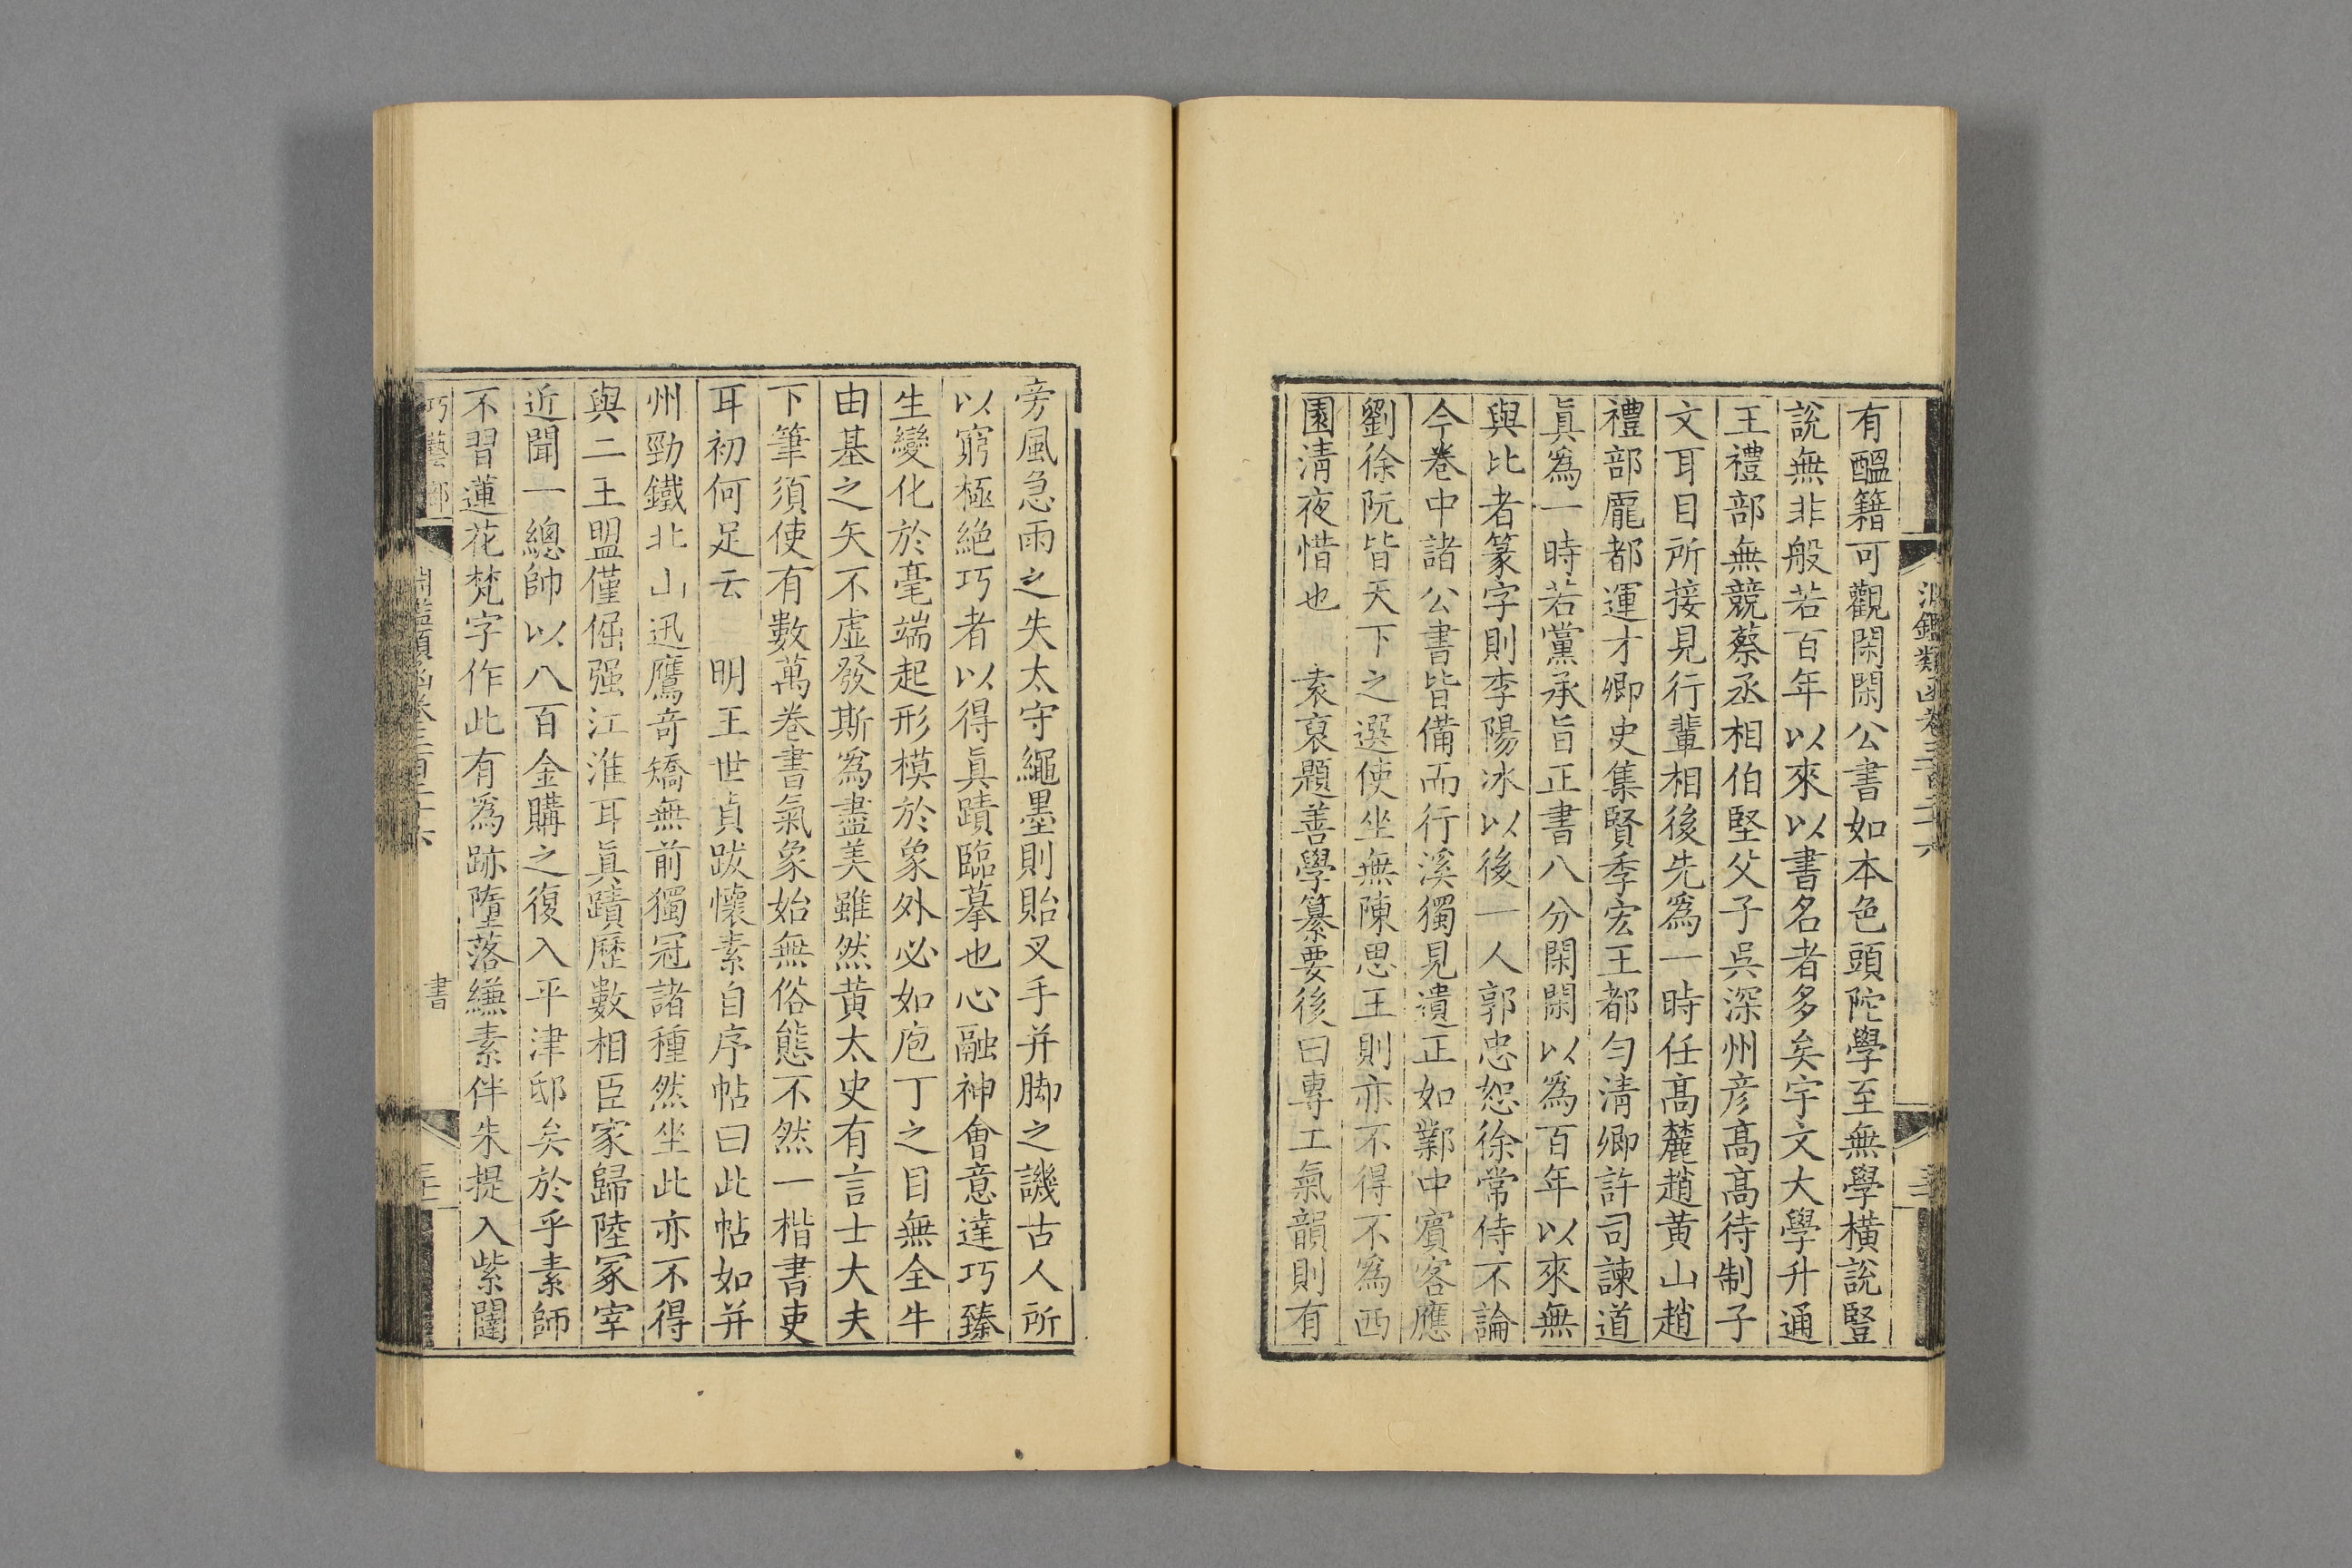 有醞籍可觀閑閑公書如本色頭陀學至無學橫說豎
說無非般若百年以來以書名者多矣宇文大學升通
王禮部無競蔡丞相伯堅父子吳深州彦髙髙待制子
文耳目所接見行輩相後先爲一時任髙麓趙黄山趙
禮部龎都運才卿史集賢季宏王都勻清卿許司諫道
眞爲一時若黨承旨正書八分閑閑以爲百年以來無
與比者篆字則李陽冰以後一人郭忠恕徐常侍不論
今卷中諸公書皆備而行溪獨見遺正如鄴中賓客應
劉徐阮皆天下之選使坐無陳思王則亦不得不爲西
園清夜惜也　袁裒題善學纂要後曰專工氣韻則有
旁風急雨之失太守繩墨則貽叉手并脚之譏古人所
以窮極絶巧者以得眞蹟臨摹也心融神會意達巧臻
生變化於毫端起形模於象外必如庖丁之目無全牛
由基之矢不虛發斯爲盡美雖然黄太史有言士大夫
下筆須使有數萬卷書氣象始無俗態不然一楷書吏
耳初何足云　明王世貞跋懷素自序帖曰此帖如并
州勁鐵北山迅鷹竒矯無前獨冠諸種然坐此亦不得
與二王盟僅倔强江淮耳眞蹟歷數相臣家歸陸冢宰
近聞一總帥以八百金購之復入平津邸矣於乎素師
不習蓮花梵字作此有爲跡墮落縑素伴朱提入紫闥
巧藝部
書